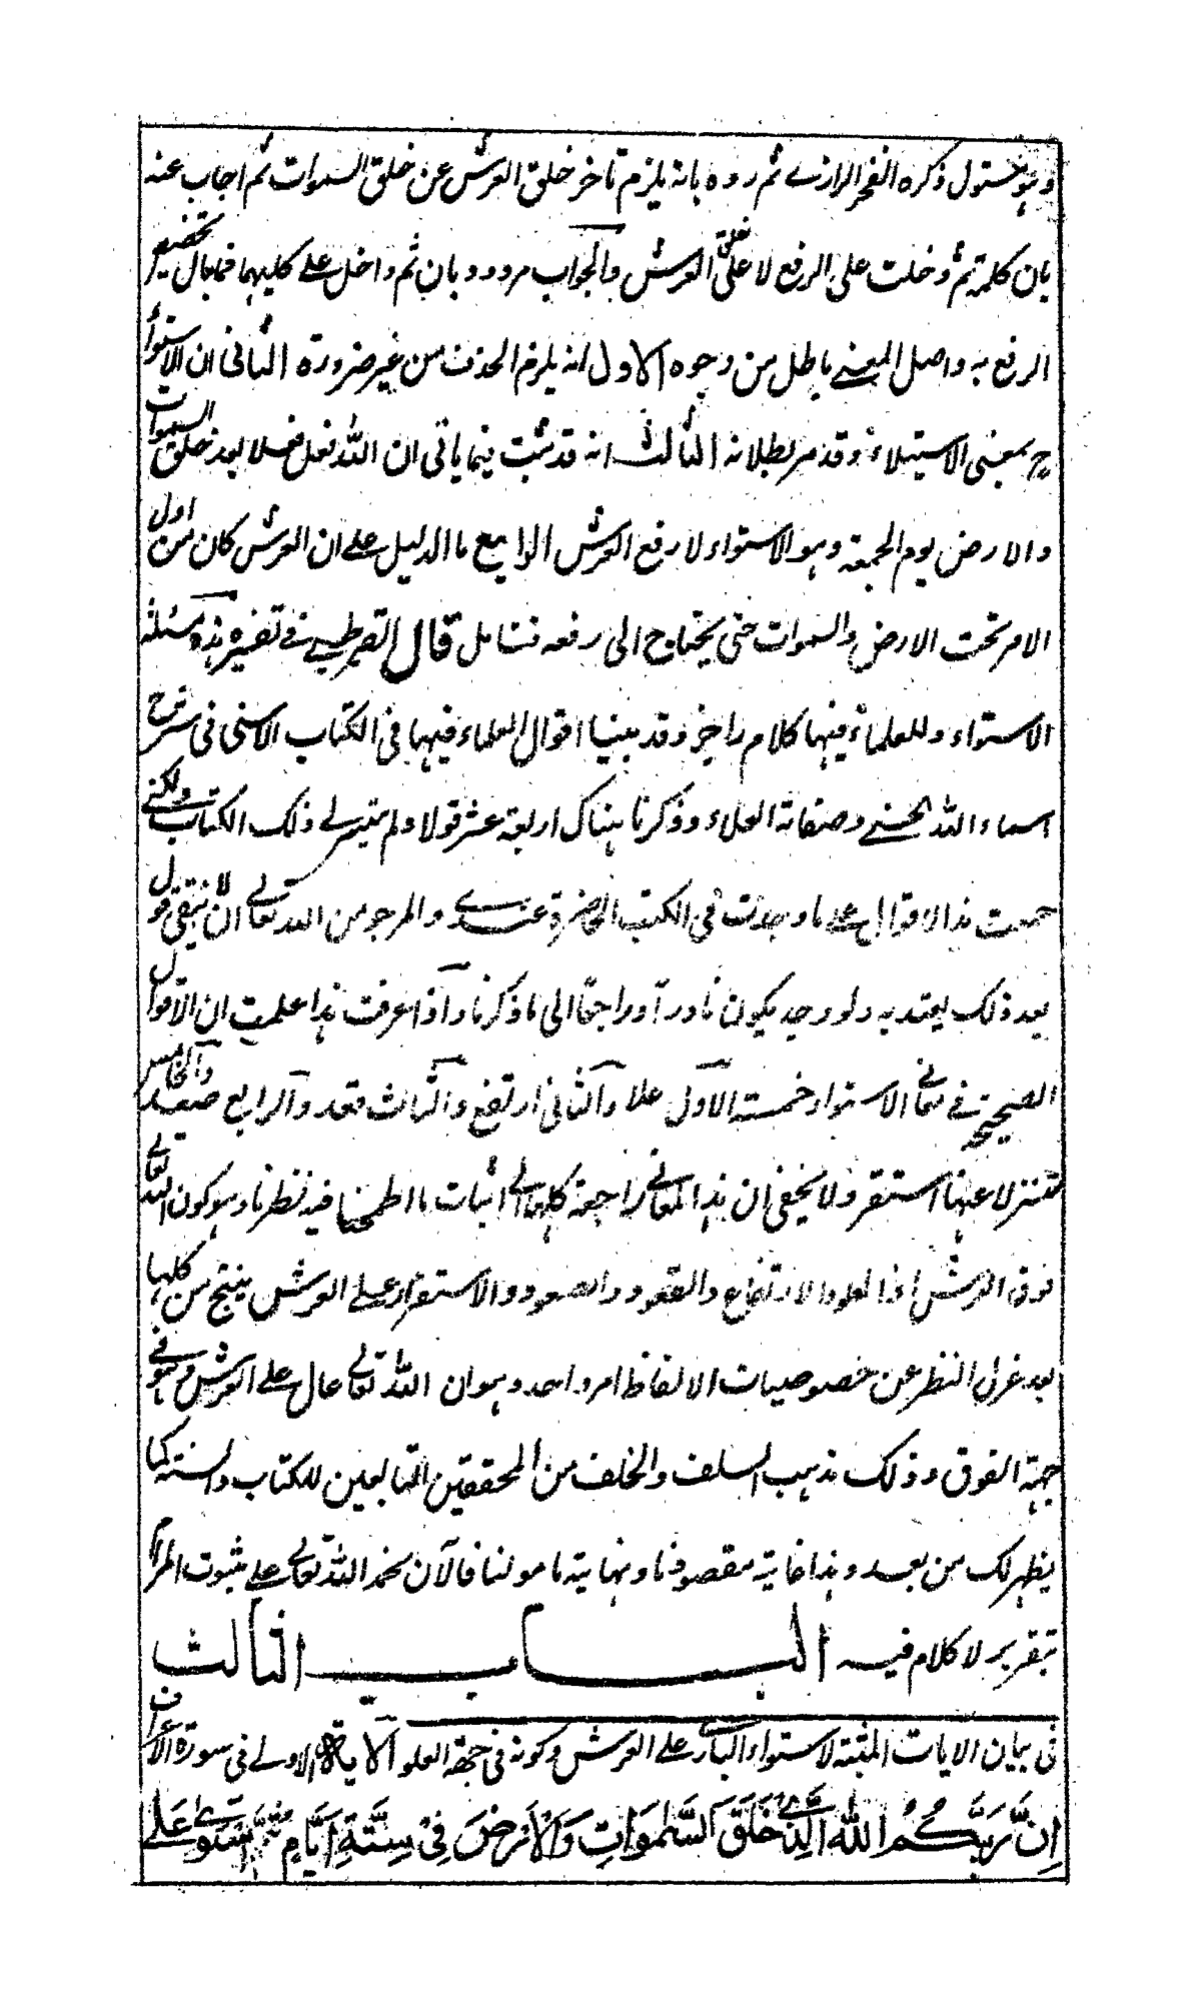 وهو مستول ذكره الفخر الرازي ثم رده بانه يلزم تاخر خلق العرش عن خلق السموات ثم اجاب عنه
بان كلمة ثم دخلت على الرفع لا على خلق العرش والجواب مردود بان ثم داخل على كليهما فما بال تخصيص
الرفع به واصل المعنى باطل من وجوه الاول انه يلزم الحذف من غير ضرورة الثاني ان الاستواء
ح بمعنى الاستيلاء وقد مر بطلانه الثالث انه قد ثبت فيما ياتي ان الله فعل فعلا بعد خلق السموات
والارض يوم الجمعة وهو الاستواء لا رفع العرش الرابع ما الدليل على ان العرش كان من اول
الامر تحت الارض والسموات حتى يحتاج الى رفعه فتامل قال القرطبي في تفسيره هذه مسئلة
الاستواء وللعلماء فيها كلام واجز وقد بينا اقوال العلماء فيها في الكتاب الاسنى في شرح
اسماء الله الحسنى وصفاته العلاء وذكرنا هناك اربعة عشر قولا ولم يتيسر لي ذلك الكتاب ولكني
جمعت هذا الاقوال على ما وجدت في الكتب الحاضرة عندي والمرجو من الله تعالى ان لا يبقى قول
بعد ذلك يعتد به ولو وجد يكون نادرا او راجعا الى ما ذكرنا واذا عرفت هذا علمت ان الاقوال
الصحيحة في معاني الاستواء خمسة الاول علا والثاني ارتفع والثالث قعد والرابع صعد والخامس
تنزلا عنها استقر ولا يخفى ان هذا المعاني راجعة كلها الى اثبات ما اطمحنا فيه نظرنا وهو كون الله تعالى
فوق العرش اذ العلو والارتفاع والقعود والصعود والاستقرار على العرش ينتج من كلها
بعد عزل النظر عن خصوصيات الالفاظ امر واحد وهو ان الله تعالى عال على العرش وهو في
جهة الفوق وذلك مذهب السلف والخلف من المحققين التابعين للكتاب والسنة كما
يظهر لك من بعد وهذا غاية مقصودنا ونهاية مامولنا فالآن نحمد الله تعالى على ثبوت المرام
بتقرير لا كلام فيه الباب الثالث
في بيان الآيات المثبتة لاستواء الباري على العرش وكونه في جهة العلو الآية الاولى في سورة الاعراف
اِنَّ رَبَّكُمُ اللّٰهُ الَّذِيْ خَلَقَ السَّمٰوَاتِ وَالْاَرْضَ فِيْ سِتَّةِ اَيَّامٍ ثُمَّ اسْتَوٰى عَلَى